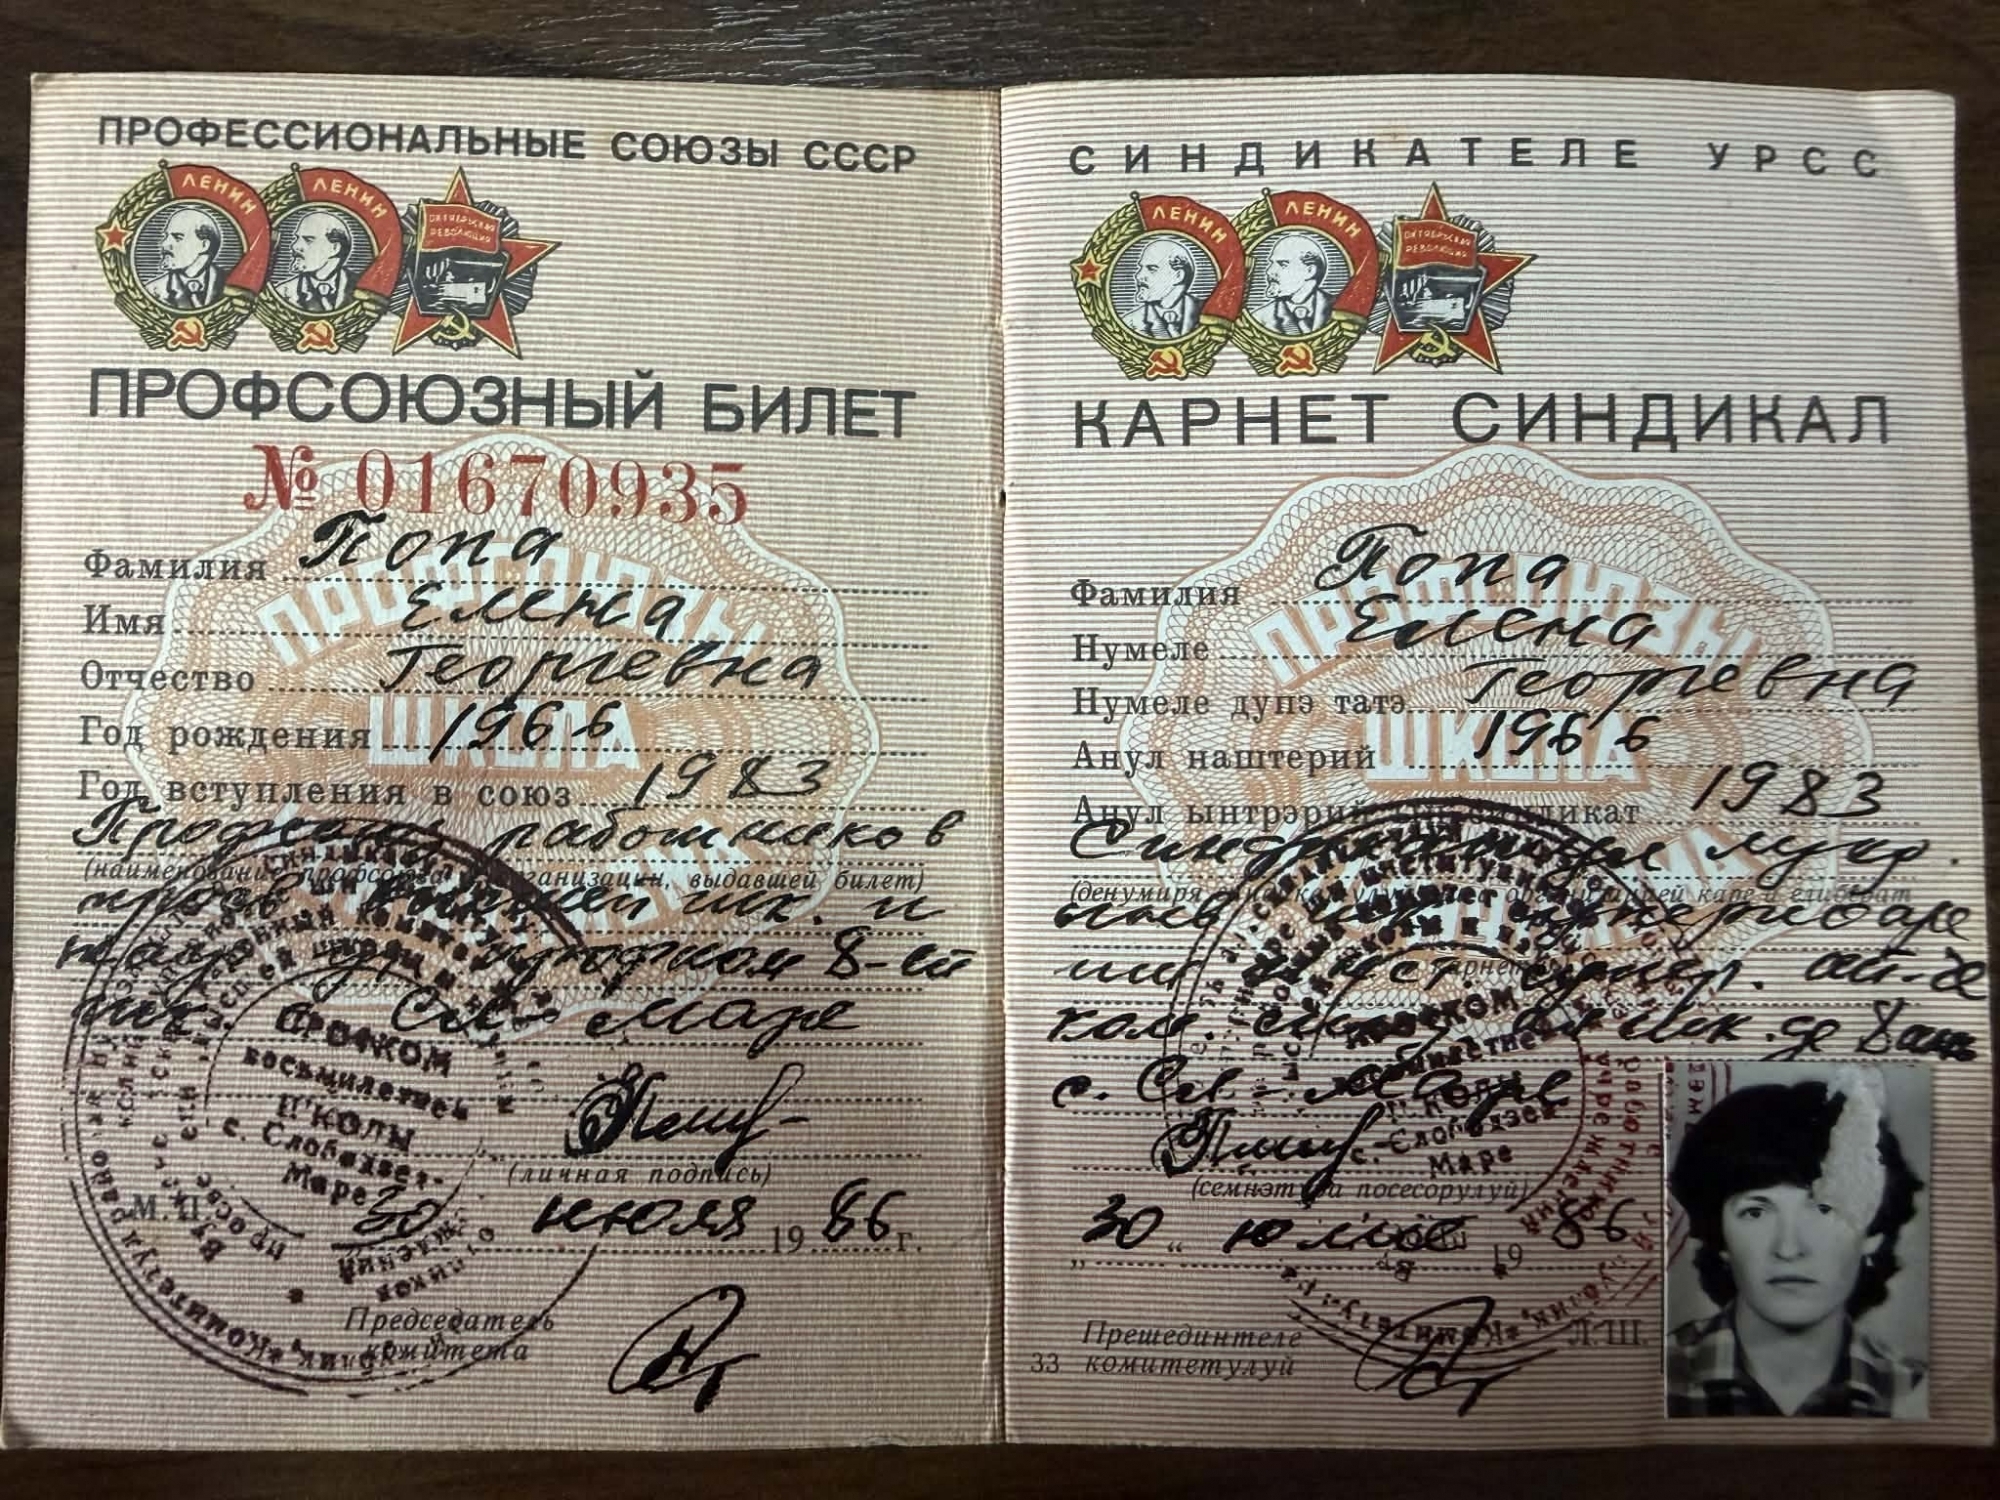 ПРОФЕССИОНАЛЬНЫЕ СОЮЗЫ СССР
ЛЕНИН ЛЕНИН ОКТЯБРЬСКАЯ РЕВОЛЮЦИЯ
ПРОФСОЮЗНЫЙ БИЛЕТ
№ 01670935
ПРОФСОЮЗЫ
ШКОЛА
Фамилия Попа
Имя Елена
Отчество Георгиевна
Год рождения 1966
Год вступления в союз 1983
Профсоюз работников
(наименование профсоюза организации, выдавшей билет)
просв высшей шк. и
профком 8-ей
шк. с Сл-Маре
ПРОФКОМ
восьмилетн
ШКОЛЫ
с. Слободзея-
Маре
(личная подпись)
М. П. 30 июля 1986 г.
Председатель
комитета
СИНДИКАТЕЛЕ УРСС
ЛЕНИН ЛЕНИН ОКТЯБРЬСКАЯ РЕВОЛЮЦИЯ
КАРНЕТ СИНДИКАЛ
ПРОФСОЮЗЫ
ШКОЛА
Фамилия Попа
Нумеле Елена
Нумеле дупэ татэ Георгевна
Анул наштерий 1966
Анул ынтрэрий ын синдикат 1983
Синдикатул лукр.
де 8 ань
с. Сл-Маре
ПРОФКОМ
ШКОЛЫ
с. Слободзея-
Маре
(семнэтура посесорулуй)
30 " юлие 1986
Прешединтеле
33 комитетулуй
Л. Ш.